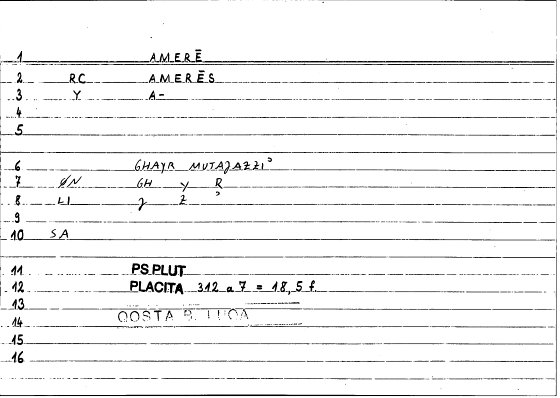 1 AMERĒ
2 RC AMERĒS
3 Y A-
4
5
6 GHAYR MUTAǦAZZIʾ
7 ØN GH Y R
8 LI ǧ Z ʾ
9
10 SA
11 PS.PLUT
12 PLACITA 312 a 7 = 18,5 f.
13
14 QOSTA B. LUQA
15
16